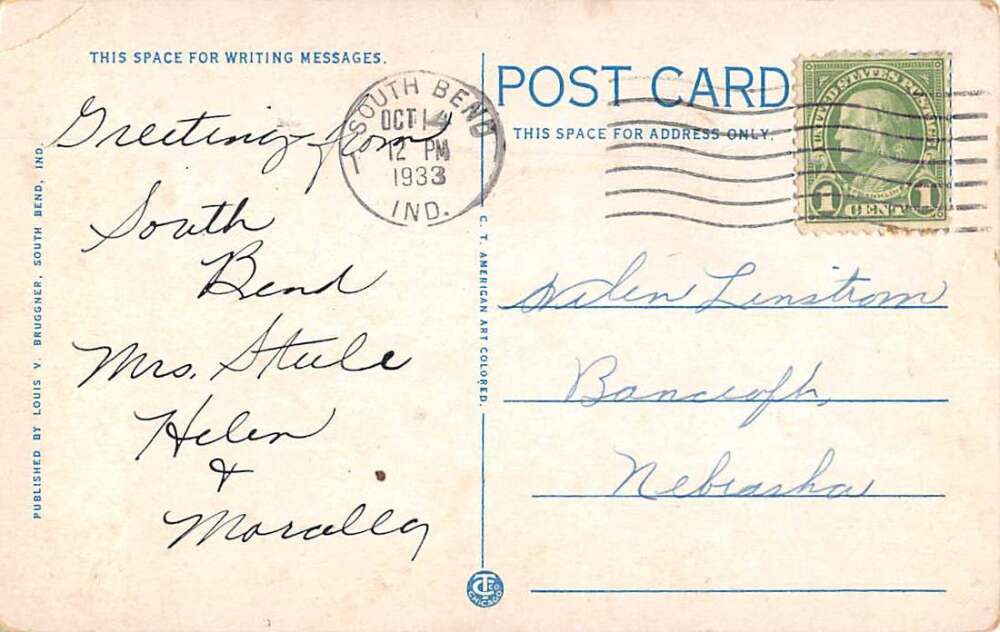 THIS SPACE FOR WRITING MESSAGES.
Greeting from
South
Bend
Mrs. Steele
Helen
&
PUBLISHED BY LOUIS V. BRUGGNER, SOUTH BEND, IND.
C. T. AMERICAN ART COLORED.
SOUTH BEND
OCT 14
12 PM
1933
IND.
POST CARD
THIS SPACE FOR ADDRESS ONLY.
UNITED STATES POSTAGE
FRANKLIN
1 CENT 1
Linstrom
Bancroft,
Nebraska
CT
CHICAGO